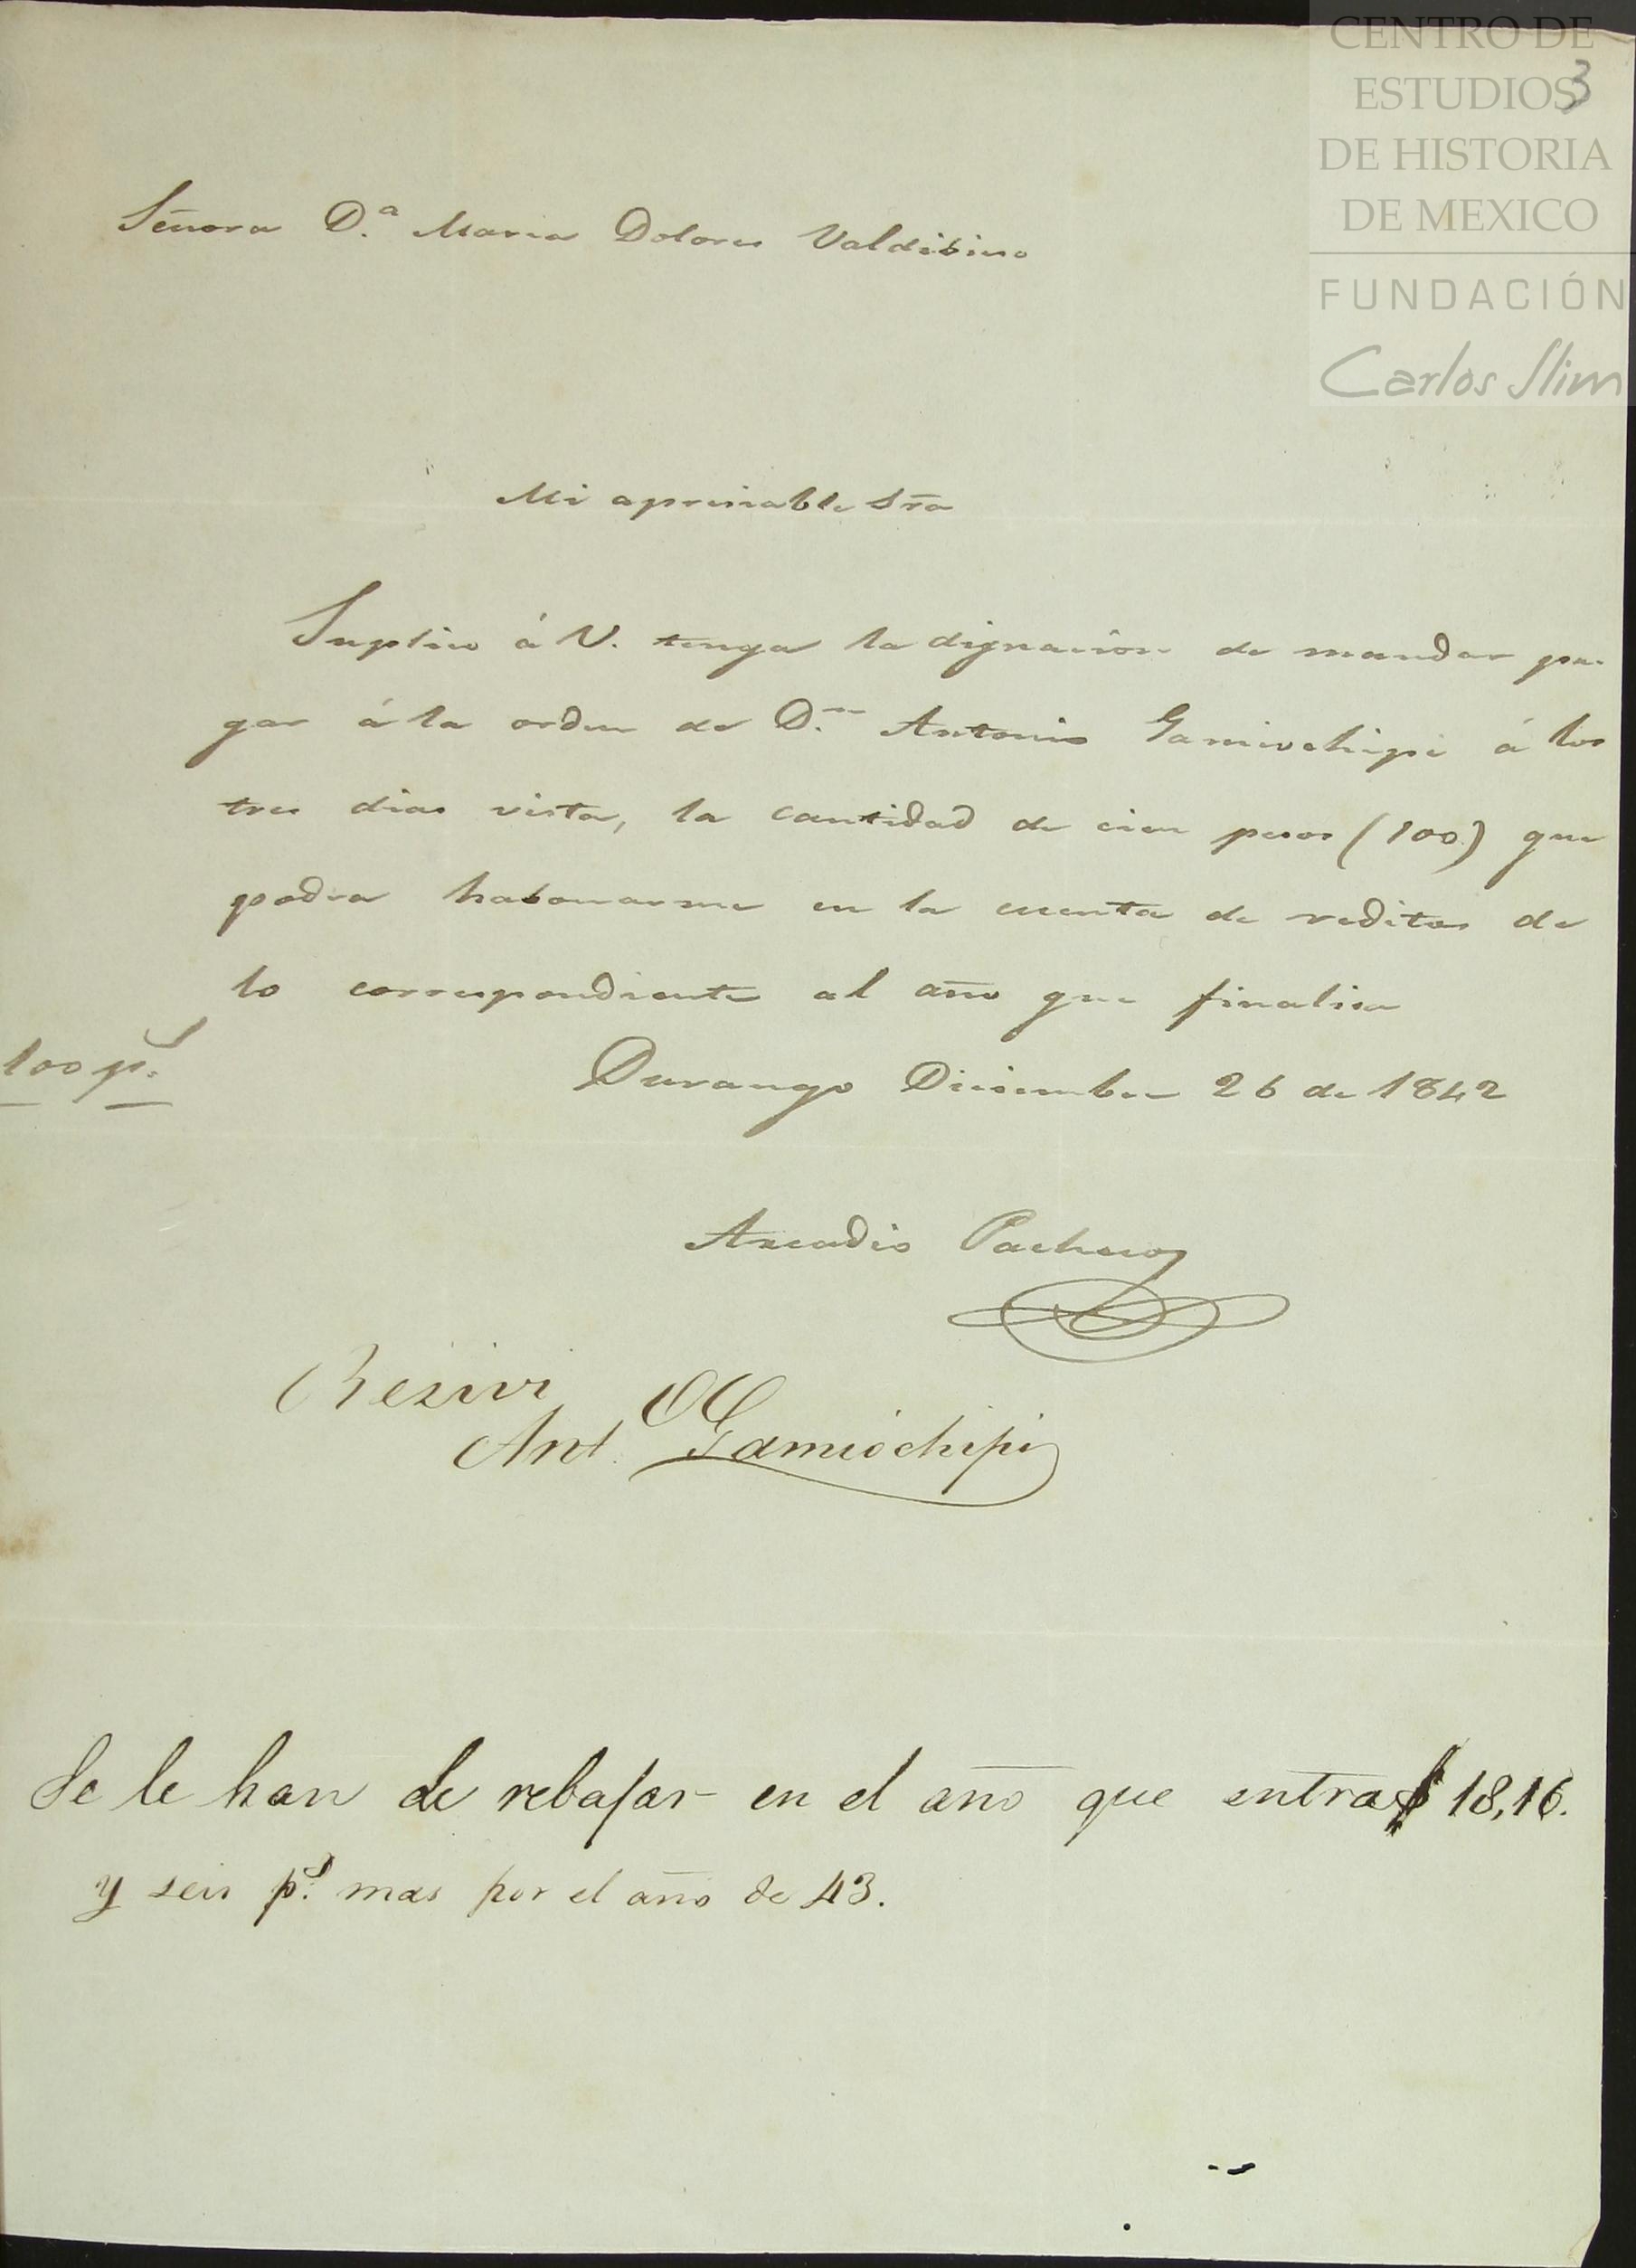 CENTRO DE
ESTUDIOS
3
DE HISTORIA
DE MEXICO
FUNDACIÓN
Carlos Slim
Señora D.ª Maria Dolores Valdibieso
Mi apreciable Sra
Suplico á V. tenga la dignacion de mandar pa-
gar á la orden de D.n Antonio Gamiochipi á los
tres dias vista, la cantidad de cien pesos (100) que
podra habonarme en la cuenta de reditos de
lo correspondiente al año que finalisa
100 p.s
Durango Diciembre 26 de 1842
Arcadio Pacheco
Rezivi
Ant. Gamiochipi
Se le han de rebajar en el año que entra $ 18,16.
y seis p.s mas por el año de 43.